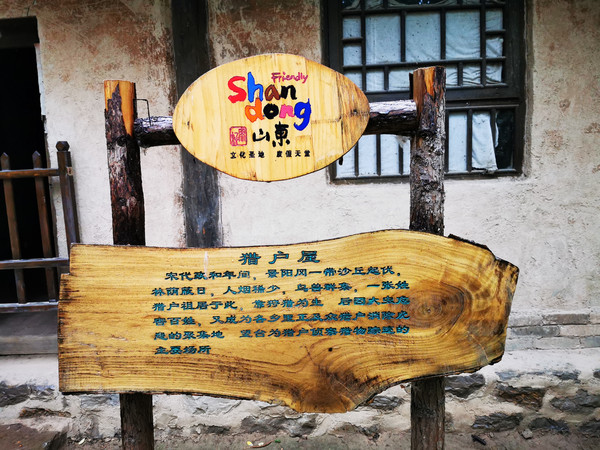 Friendly
Shan
dong
山东
文化圣地 度假天堂
猎户屋
宋代政和年间，景阳冈一带沙丘起伏，
林荫蔽日，人烟稀少，鸟兽群集，一张姓
猎户祖居于此，靠狩猎为生 后因大虫危
害百姓，又成为各乡里正及众猎户消除虎
患的聚集地 望台为猎户侦察猎物踪迹的
主要场所